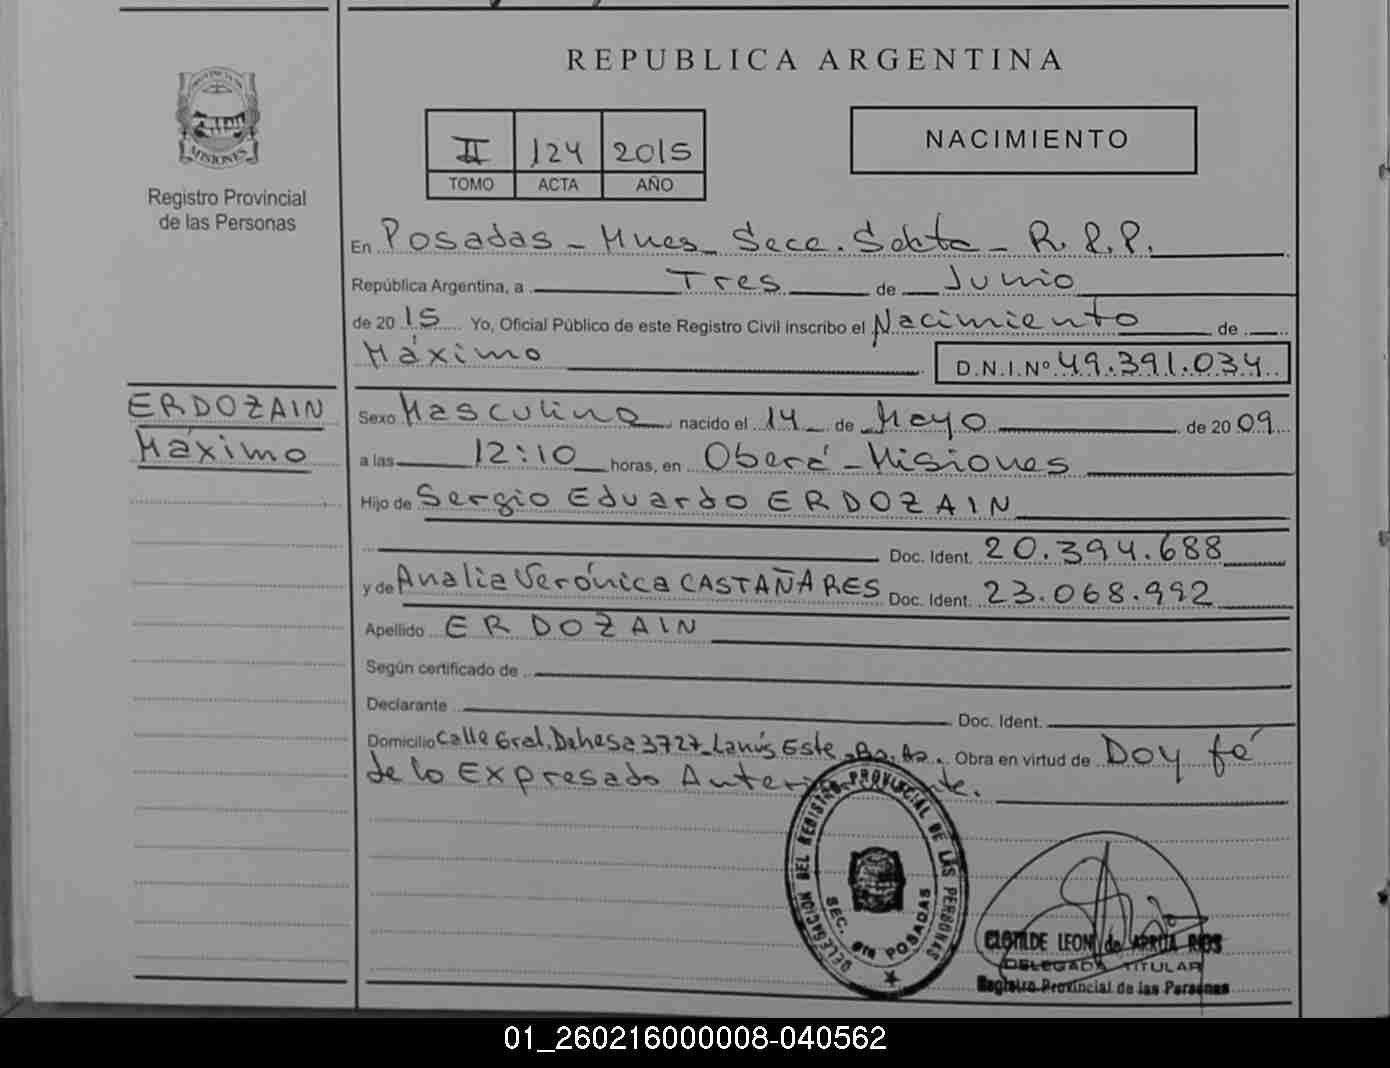 REPUBLICA ARGENTINA
II 124 2015
TOMO ACTA AÑO
NACIMIENTO
MISIONES
Registro Provincial
de las Personas
En Posadas - Mnes - Secc. Sexta - R.P.P.
República Argentina, a Tres de Junio
de 2015 Yo, Oficial Público de este Registro Civil inscribo el Nacimiento de
Máximo D.N.I.Nº 49.391.034
ERDOZAIN
Máximo
Sexo Masculino nacido el 14 de Mayo de 2009
a las 12:10 horas, en Oberá - Misiones
Hijo de Sergio Eduardo ERDOZAIN
Doc. Ident. 20.394.688
y de Analia Verónica CASTAÑARES Doc. Ident. 23.068.992
Apellido ERDOZAIN
Según certificado de
Declarante Doc. Ident.
Domicilio Calle Gral. Dehesa 3727 - Lanús Este - Bs. As. Obra en virtud de Doy fé
de lo Expresado Anteriormente.
DELEGACION DEL REGISTRO PROVINCIAL DE LAS PERSONAS
SEC. 6ta POSADAS
CLOTILDE LEON de ARRUA RIOS
DELEGADA TITULAR
Registro Provincial de las Personas
01_260216000008-040562